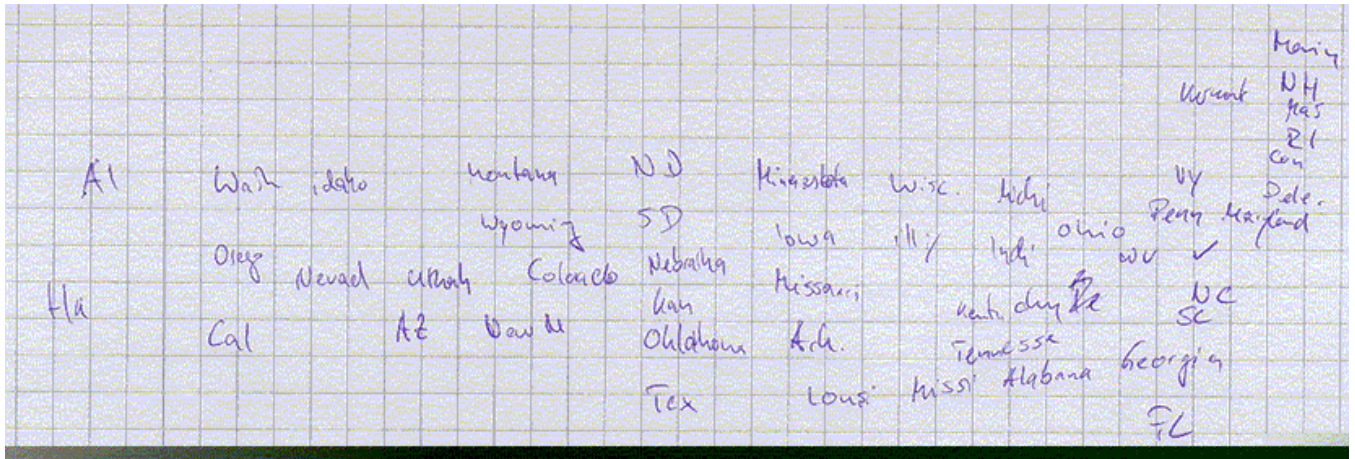 Main
Vermont NH
Mas
RI
Con
Al Wash idaho Montana ND Minnesota Wisc. Michi NY Dele.
Wyoming SD Iowa Illi Indi Ohio Penn Maryland
Oreg Nevad Utah Colorado Nebraska Missouri WV V
Ha Kan Kentucky NC
SC
Cal AZ New M Oklahoma Ark. Tennessa
Tex Lousi Missi Alabama Georgia
FL